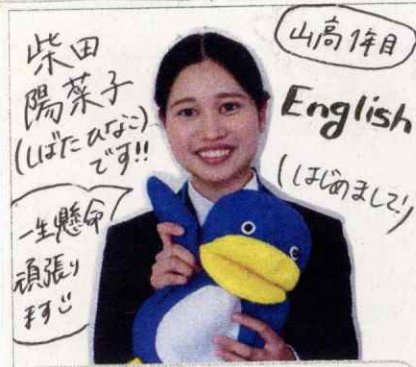 柴田
陽菜子
(しばた ひなこ)
です!!
一生懸命
頑張り
ます
山高1年目
English
(はじめまして!)